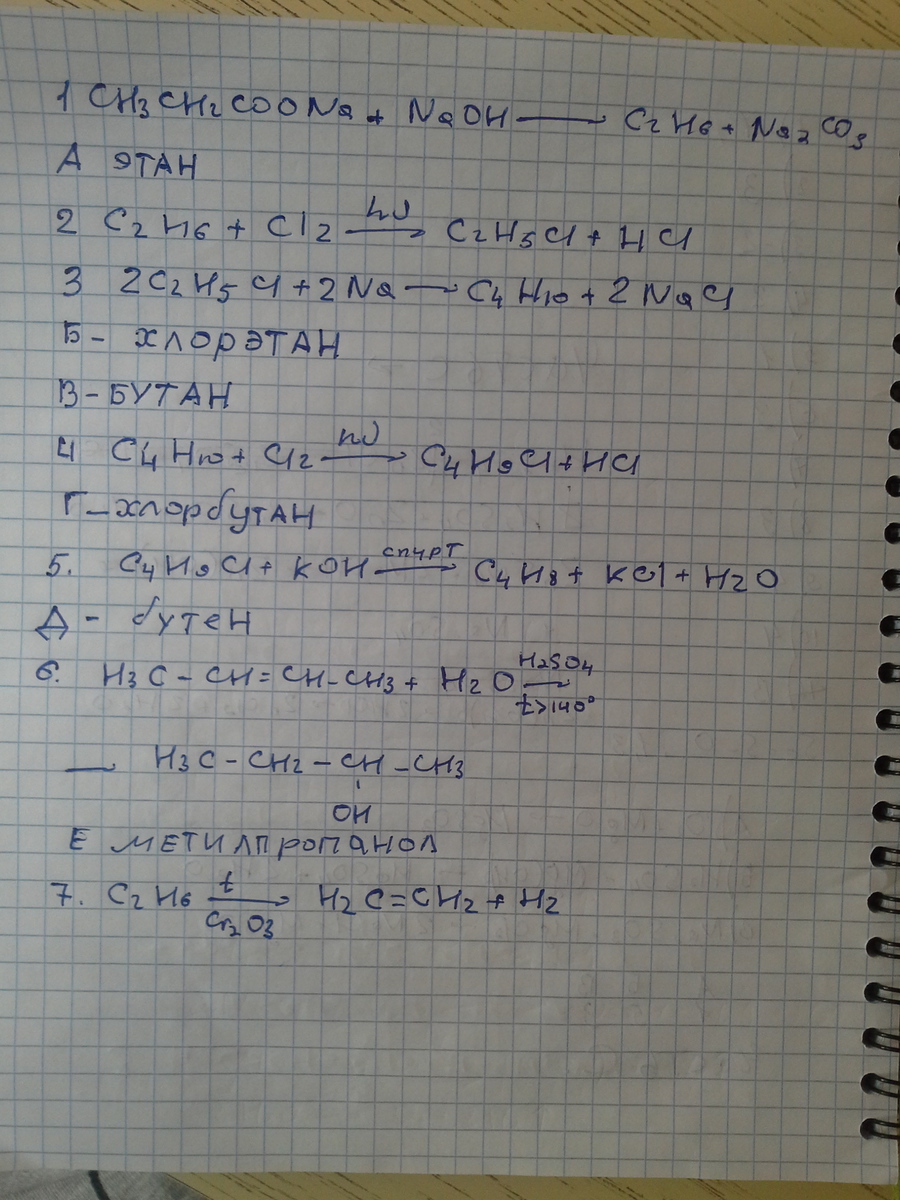 1 CH3CH2COONa + NaOH → C2H6 + Na2CO3
А ЭТАН
2 C2H6 + Cl2 hυ → C2H5Cl + HCl
3 2C2H5Cl + 2Na → C4H10 + 2NaCl
Б - ХЛОРЭТАН
В - БУТАН
4 C4H10 + Cl2 hυ → C4H9Cl + HCl
Г - хлорбутАН
5. C4H9Cl + KOH спирт → C4H8 + KCl + H2O
Д - бутен
6. H3C - CH = CH - CH3 + H2O H2SO4 → t>140°
→ H3C - CH2 - CH - CH3
OH
Е МЕТИЛПРОПАНОЛ
7. C2H6 t → Cr2O3 H2C=CH2 + H2